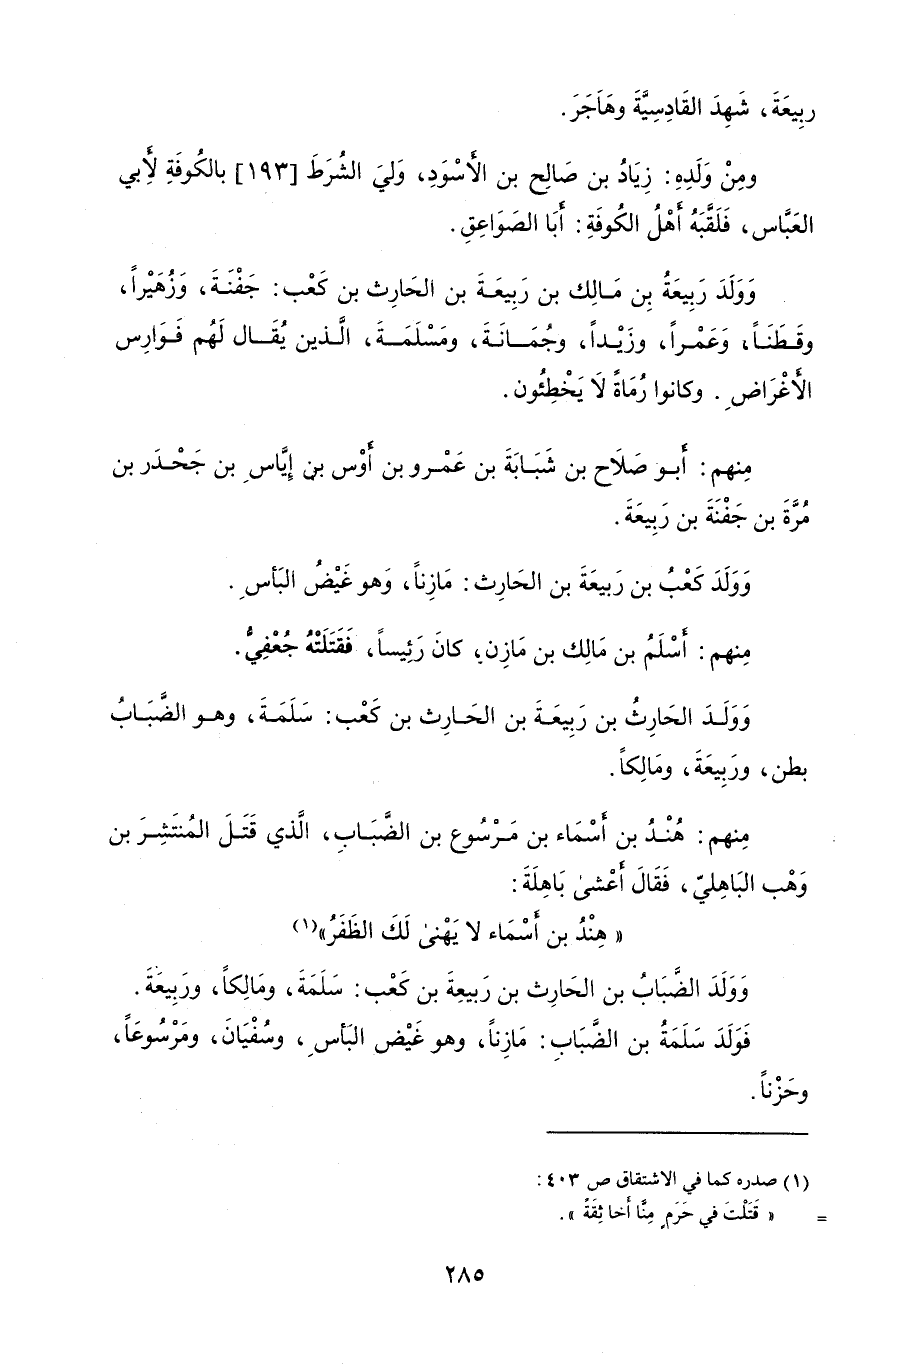 ربِيعَةَ، شَهِدَ القَادِسِيَّةَ وهَاجَرَ.
ومِنْ وَلَدِهِ: زِيَادُ بن صَالِح بن الأَسْوَدِ، وَليَ الشُرَطَ [١٩٣] بالكُوفَةِ لِأَبي
العَبَّاس، فَلَقَّبَهُ أَهْلُ الكُوفَةِ: أَبَا الصَوَاعِقِ.
وَوَلَدَ رَبِيعَةُ بن مَالك بن رَبِيعَةَ بن الحَارِث بن كَعْب: جَفْنَةَ، وَزُهَيْراً،
وقَطَنَاً، وَعَمْراً، وزَيْداً، وجُمَانَةَ، ومَسْلَمَةَ، الَّذين يُقَال لَهُم فَوَارِس
الأَغْرَاضِ. وكانوا رُمَاةً لَا يَخْطِئُون.
مِنهم: أَبو صَلَاح بن شَبَابَةَ بن عَمْرو بن أَوْس بن إِيَّاسِ بن جَحْدَر بن
مُرَّةَ بن جَفْنَةَ بن رَبِيعَةَ.
وَوَلَدَ كَعْبُ بن رَبِيعَةَ بن الحَارِث: مَازِناً، وَهو غَيْضُ البَأسِ.
مِنهم: أَسْلَمُ بن مَالِك بن مَازِن، كانَ رَئِيساً، فَقَتَلَتْهُ جُعْفِيُّ.
وَوَلَدَ الحَارِثُ بن رَبِيعَةَ بن الحَارِث بن كَعْب: سَلَمَةَ، وهو الضَّبَابُ
بطن، ورَبِيعَةَ، ومَالِكاً.
مِنهم: هُنْدُ بن أَسْمَاء بن مَرْسُوع بن الضَّبَابِ، الَّذي قَتَلَ المُنتَشِرَ بن
وَهْب البَاهِليّ، فَقَالَ أَعْشىٰ بَاهِلَةَ:
« هِنْدُ بن أَسْمَاء لا يَهْنىٰ لَكَ الظَفَرُ»(١)
وَوَلَدَ الضَّبَابُ بن الحَارِث بن رَبيعةَ بن كَعْب: سَلَمَةَ، ومَالِكاً، ورَبِيعَةَ.
فَوَلَدَ سَلَمَةُ بن الضَّبَابِ: مَازِناً، وهو غَيْض البَأسِ، وسُفْيَانَ، ومَرْسُوعَاً،
وحَزْناً.
(١) صدره كما في الاشتقاق ص ٤٠٣:
« قَتَلْتَ في حَرَمٍ مِنَّا أَخا ثِقَةً ».
=
٢٨٥